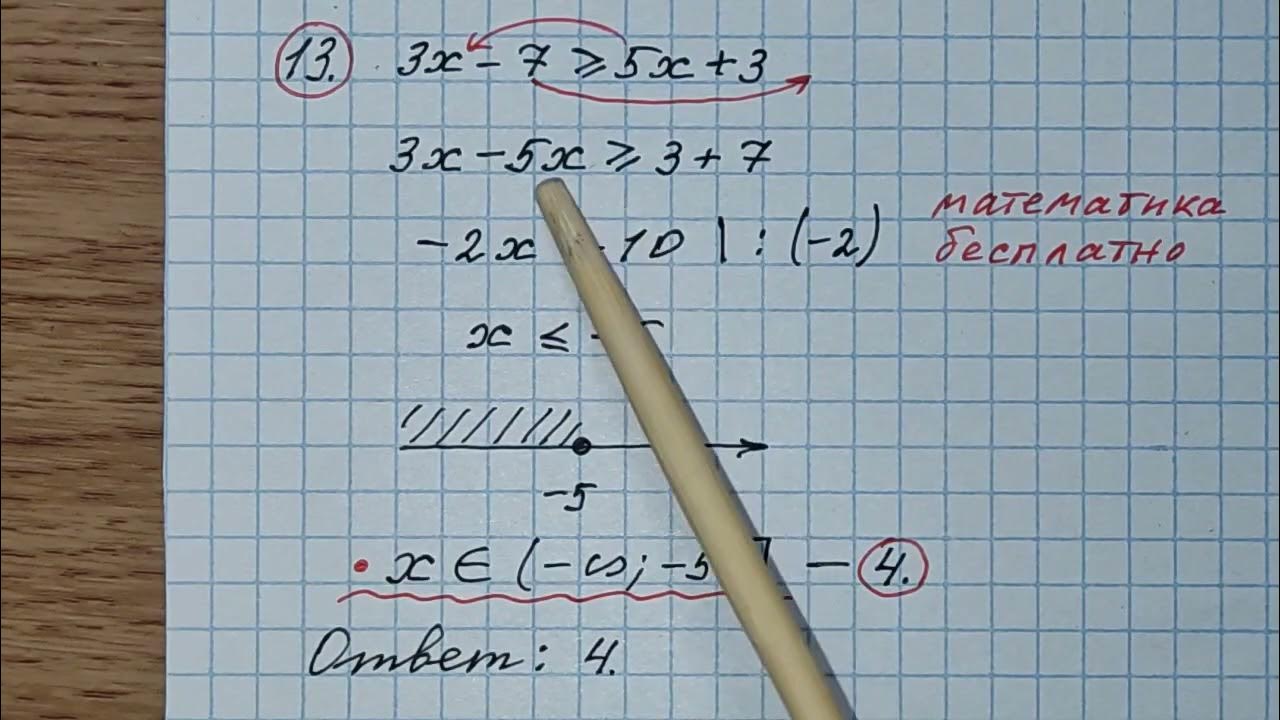 13. 3x - 7 ⩾ 5x + 3
3x - 5x ⩾ 3 + 7
-2x 10 | : (-2)
математика
бесплатно
x ≤ -
-5
x ∈ (-∞; -5] — 4.
Ответ: 4.